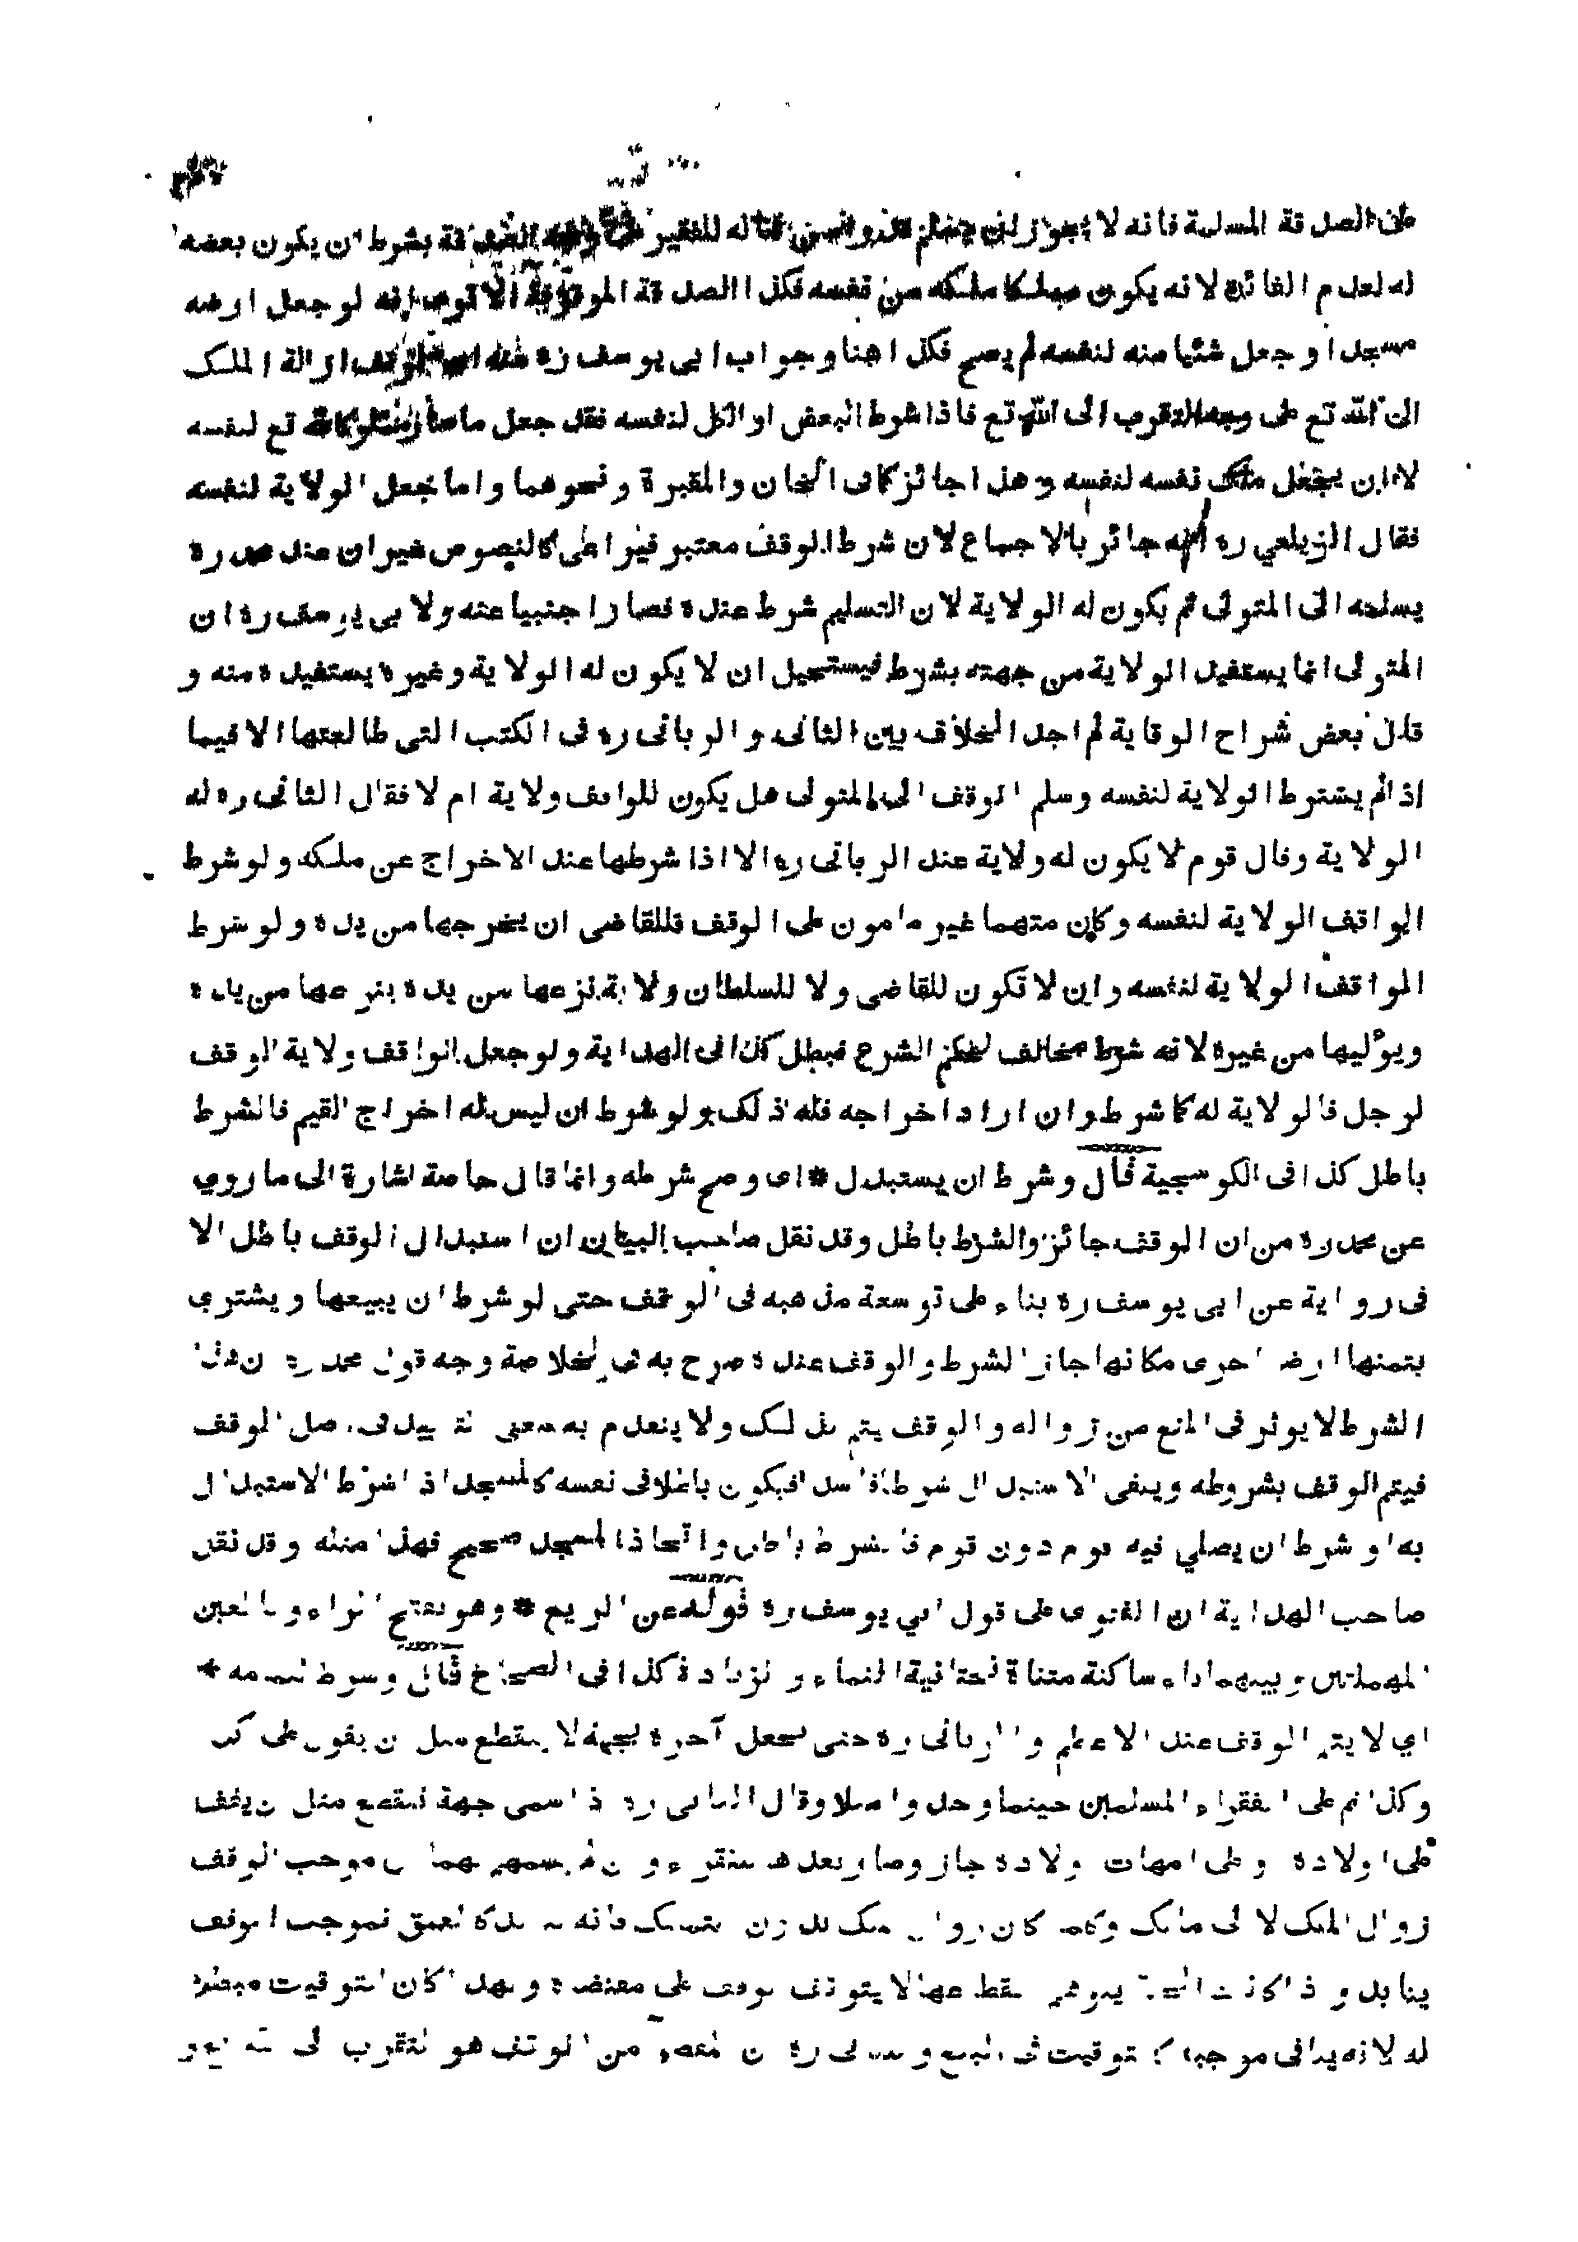 على الصدقة المسلمة فانه لا يجوز للفقير الصدقة بشرط ان يكون بعضه
له لعدم الفائدة لانه يكون مملكا ملكه من نفسه فكذا الصدقة الموقوفة الا ترى انه لو جعل ارضه
مسجدا وجعل شئيا منه لنفسه لم يصح فكذا هنا وجواب ابي يوسف ره عنه ان الوقف ازالة الملك
الى الله تع على وجه التقرب الى الله تع فاذا شرط البعض او الكل لنفسه فقد جعل ما صار لله تع لنفسه
لا ان يجعل ملك نفسه لنفسه وهذا جائز كما فى الخان والمقبرة ونحوهما واما جعل الولاية لنفسه
فقال الزيلعي ره انه جائز بالاجماع لان شرط الوقف معتبر فيراعى كالنصوص غير ان عند محمد ره
يسلمه الى المتولى ثم يكون له الولاية لان التسليم شرط عنده فصار اجنبيا عنه ولابى يوسف ره ان
المتولى انما يستفيد الولاية من جهته بشرط فيستحيل ان لا يكون له الولاية وغيره يستفيده منه و
قال بعض شراح الوقاية لم اجد الخلاف بين الثانى والربانى ره فى الكتب التى طالعتها الا فيما
اذا لم يشترط الولاية لنفسه وسلم الوقف الى المتولى هل يكون للواقف ولاية ام لا فقال الثانى ره له
الولاية وقال قوم لا يكون له ولاية عند الربانى ره الا اذا شرطها عند الاخراج عن ملكه ولو شرط
الواقف الولاية لنفسه وكان متهما غير مامون على الوقف فللقاضى ان يخرجها من يده ولو شرط
الواقف الولاية لنفسه وان لا تكون للقاضى ولا للسلطان ولاية نزعها من يده ينزعها من يده
ويوليها من غيره لانه شرط مخالف لحكم الشرع فبطل كذا فى الهداية ولو جعل الواقف ولاية الوقف
لرجل فالولاية له كما شرط وان اراد اخراجه فله ذلك ولو شرط ان ليس له اخراج القيم فالشرط
باطل كذا فى الكوسجية قال وشرط ان يستبدل * اى وصح شرطه وانما قال خاصة اشارة الى ما روي
عن محمد ره من ان الوقف جائز والشرط باطل وقد نقل صاحب البيان ان استبدال الوقف باطل الا
فى رواية عن ابى يوسف ره بناء على توسعة مذهبه فى الوقف حتى لو شرط ان يبيعها ويشتري
بثمنها ارضا اخرى مكانها جاز الشرط والوقف عنده صرح به فى الخلاصة وجه قول محمد ره ان هذا
الشرط لا يوثر فى المنع من زواله والوقف يتم بذلك ولا ينعدم به معنى اصل الوقف
فيتم الوقف بشروطه ويبقى الاستبدال شرطا فاسدا فيكون باطلا فى نفسه كالمسجد اذا شرط الاستبدال
به او شرط ان يصلي فيه قوم دون قوم فالشرط باطل واتخاذ المسجد صحيح فهذا مثله وقد نقل
صاحب الهداية ان الفتوى على قول ابي يوسف ره قوله عن الريع * وهو بفتح الراء وبالعين
المهملتين وبينهما ياء ساكنة مثناة تحتانية النماء والزيادة كذا فى الصحاح قال وشرط لتمامه *
اي لا يتم الوقف عند الاعظم والربانى ره حتى يجعل آخره لجهة لا ينقطع مثل ان يقول على كذا
وكذا ثم على الفقراء المسلمين حيثما وجدوا مثلا وقال الثانى ره اذا سمى جهة تنقطع مثل ان يقف
على اولاده وعلى امهات اولاده جاز وصار بعدها للفقراء وان لم يسمهم لهما ان موجب الوقف
زوال الملك لا الى مالك كان زوال كالعتق فموجب الوقف
يتابد واذا كانت الجهة يتوهم انقطاعها لا يتوفر الوقف على مقتضاه ولهذا كان التوقيت مبطلا
له لانه ينافى موجبه كالتوقيت فى البيع وللثانى ره ان المقصد من الوقف هو التقرب الى الله تع و